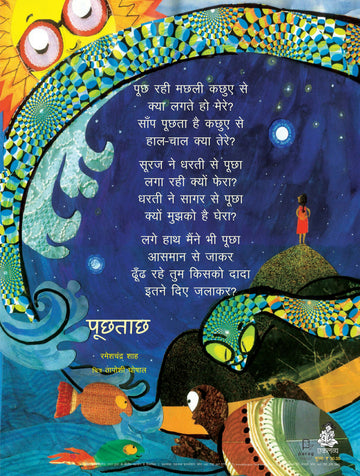 पूछ रही मछली कछुए से
क्या लगते हो मेरे?
साँप पूछता है कछुए से
हाल-चाल क्या तेरे?
सूरज ने धरती से पूछा
लगा रही क्यों फेरा?
धरती ने सागर से पूछा
क्यों मुझको है घेरा?
लगे हाथ मैंने भी पूछा
आसमान से जाकर
ढूँढ रहे तुम किसको दादा
इतने दिए जलाकर?
पूछताछ
रमेशचंद्र शाह
चित्र तापोशी घोषाल
parag
एकलव्य